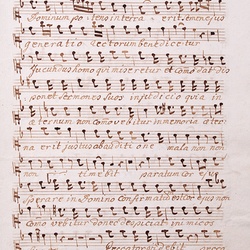 Dominum potens in terra erit semen ejus
generatio rectorum benedicetur
jucundus homo qui miseretur et comodat dis
ponet sermones suos in juditio quia in
æternum non comovebitur in memoria æter
na erit justus ab auditione mala non
non timebit paratum cor ejus
sperare in Domino confirmatum est cor ejus non
comovebitur donec despiciat inimicos